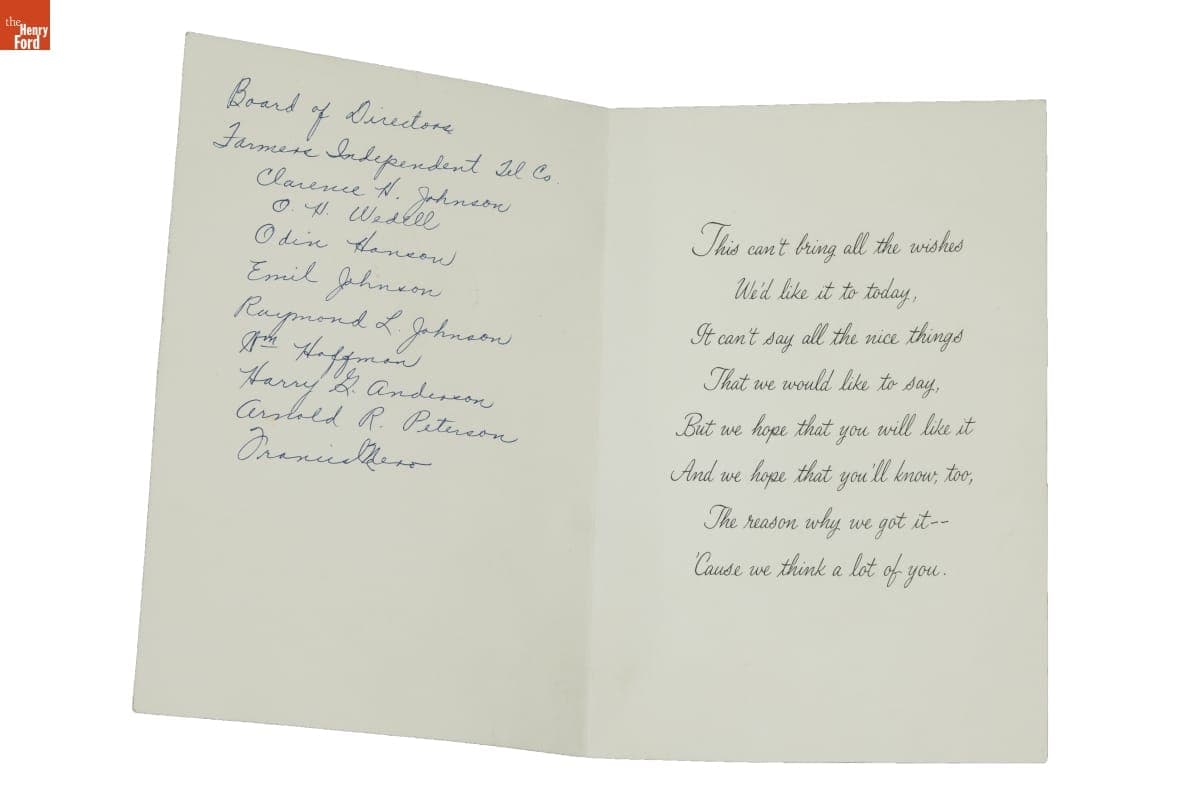 the
Henry
Ford
Board of Directors
Farmers Independent Tel Co.
Clarence H. Johnson
O. H. Wedell
Odin Hanson
Emil Johnson
Raymond L. Johnson
Wm Hoffman
Harry G. Anderson
Arnold R. Peterson
Francis
This can't bring all the wishes
We'd like it to today,
It can't say all the nice things
That we would like to say,
But we hope that you will like it
And we hope that you'll know, too,
The reason why we got it--
'Cause we think a lot of you.